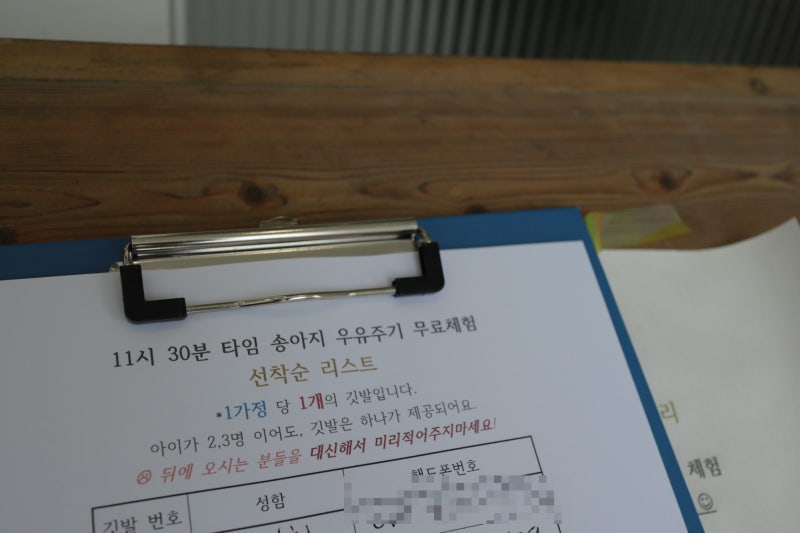 11시 30분 타임 송아지 우유주기 무료체험
선착순 리스트
*1가정 당 1개의 깃발입니다.
아이가 2,3명 이어도, 깃발은 하나가 제공되어요.
☹ 뒤에 오시는 분들을 대신해서 미리적어주지마세요!
깃발 번호 성함 핸드폰번호
리
체험
☺